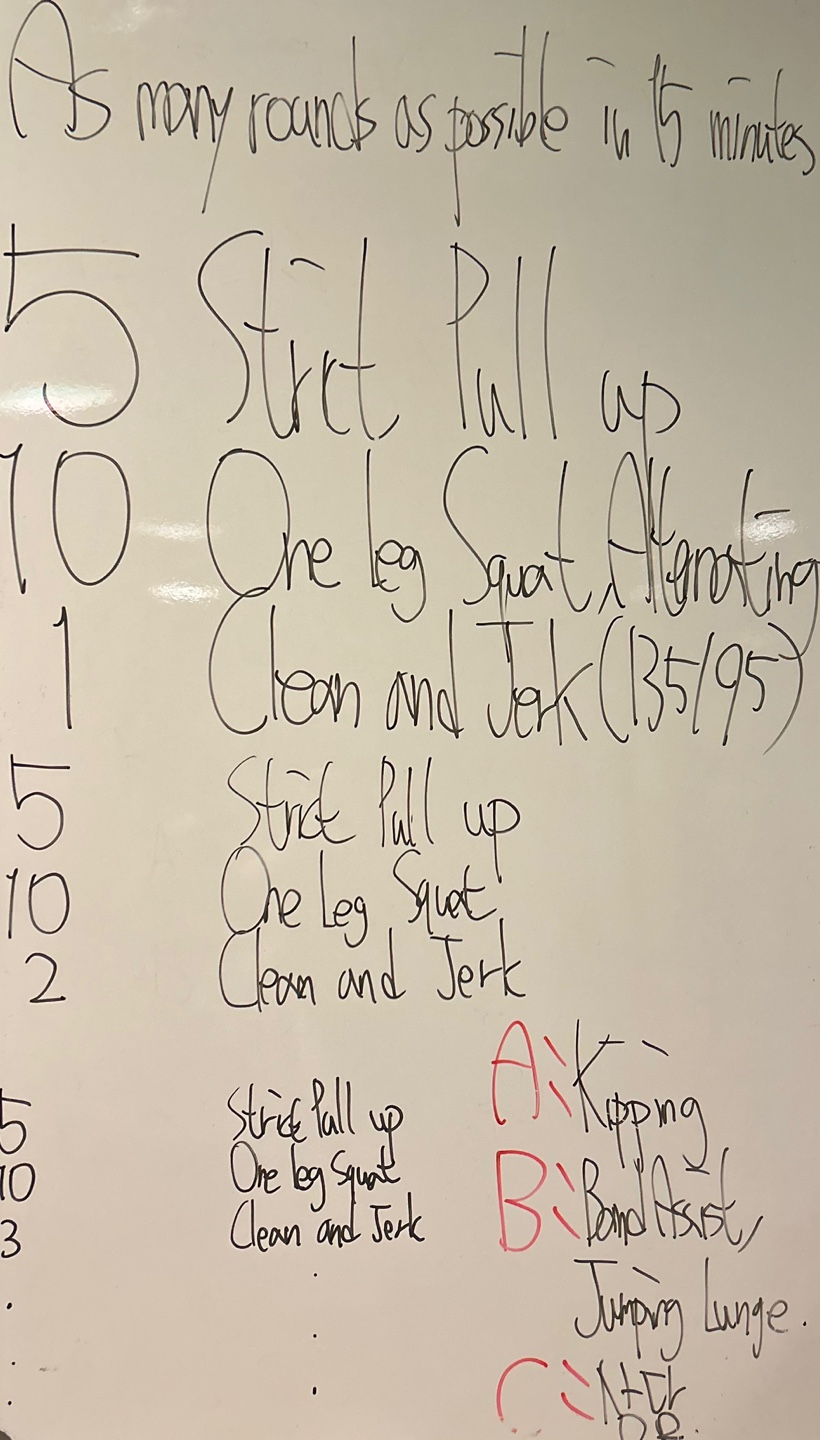 As many rounds as possible in 15 minutes
5 Strict Pull up
10 One leg Squat, Alternating
1 Clean and Jerk (135/95)
5 Strict Pull up
10 One Leg Squat
2 Clean and Jerk
5 Strict Pull up
10 One leg Squat
3 Clean and Jerk
A: Kipping
B: Band Assist,
Jumping Lunge.
C: